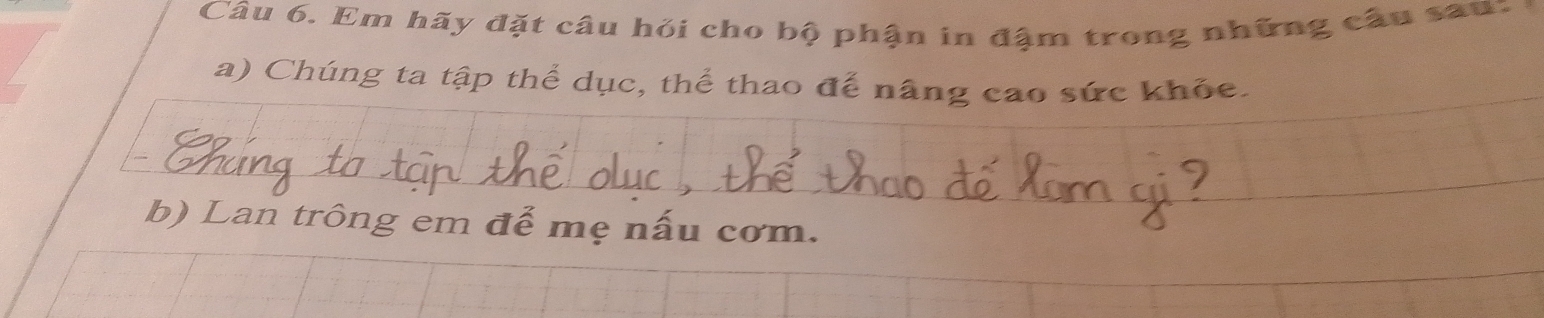 Câu 6. Em hãy đặt câu hỏi cho bộ phận in đậm trong những câu sau:
a) Chúng ta tập thể dục, thể thao để nâng cao sức khỏe.
- Chúng ta tập thể dục, thể thao để làm gì?
b) Lan trông em để mẹ nấu cơm.